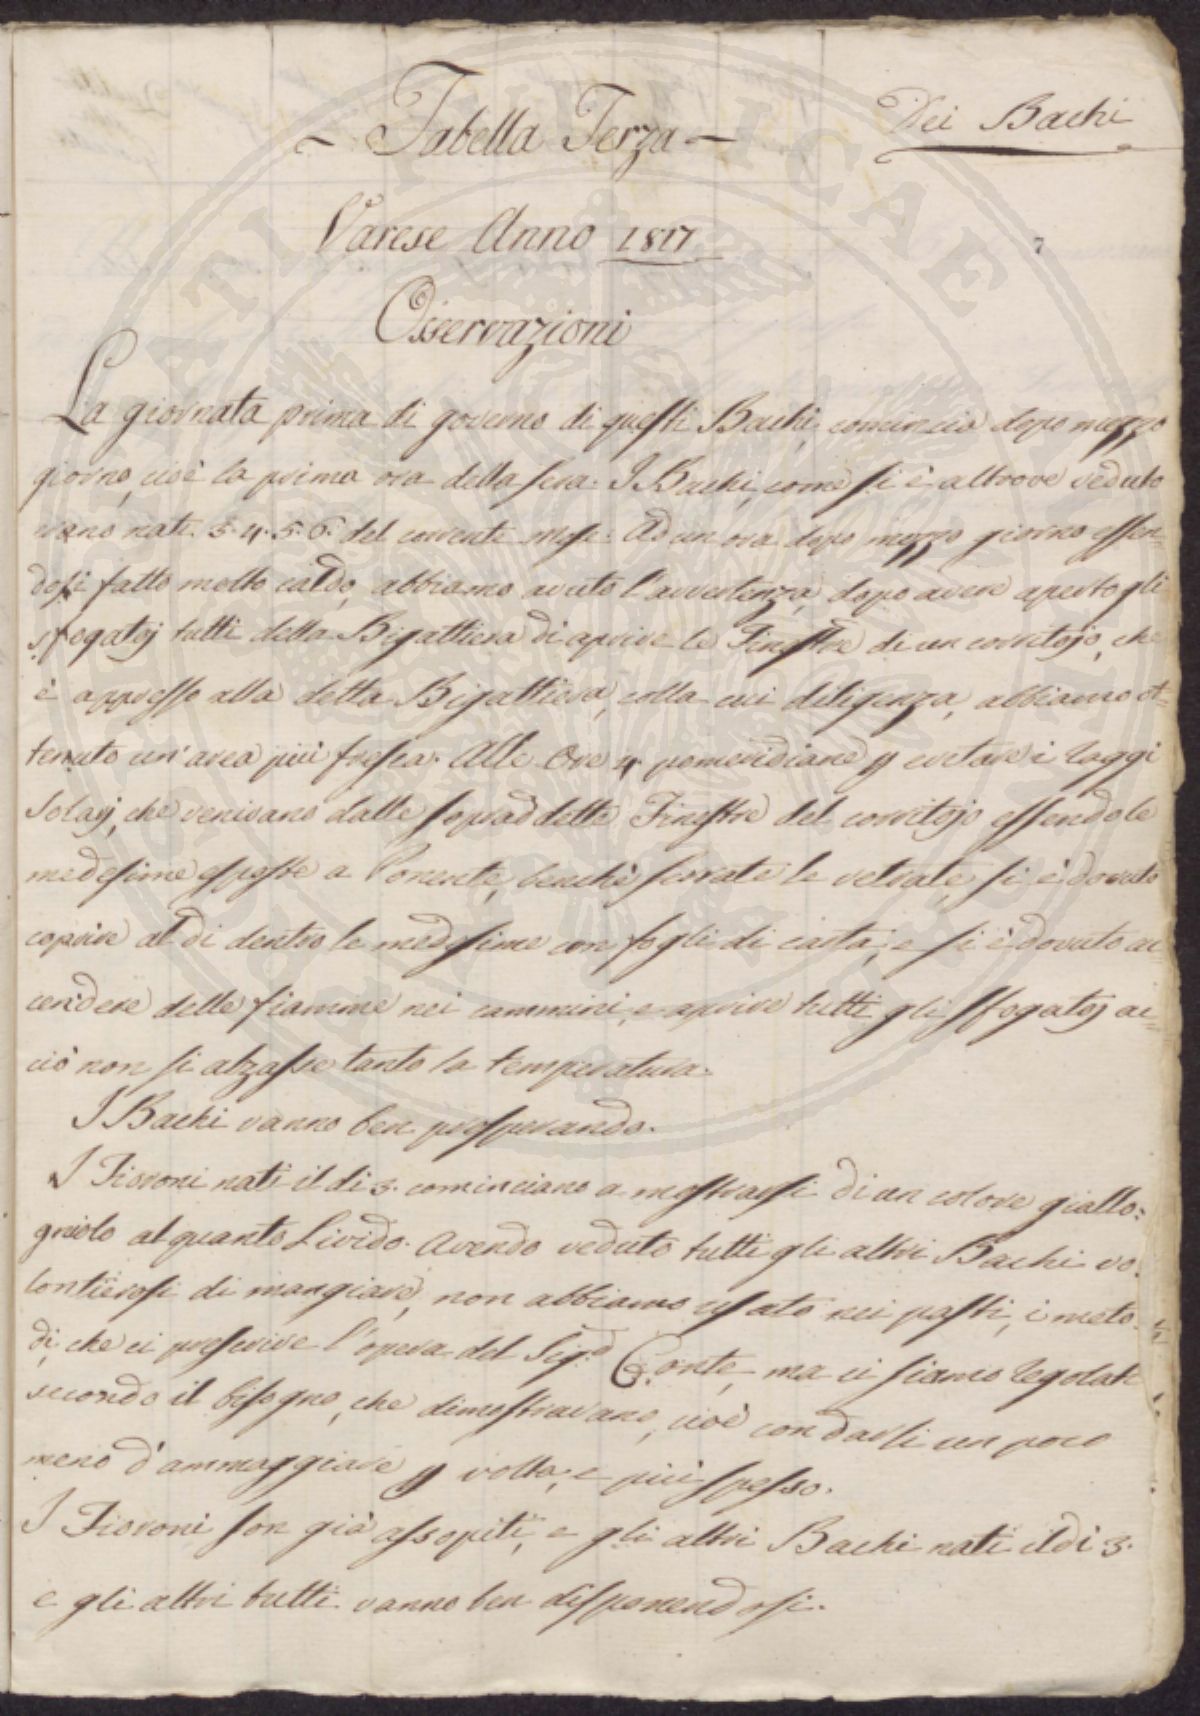 Dei Bachi
- Tabella Terza -
7
Varese Anno 1817
Osservazioni
La giornata prima di governo di questi Bachi, cominciò dopo mezzo
giorno, cioè la prima ora della sera. I Bachi, come si è altrove veduto
erano nati 3. 4. 5. 6. del corrente mese. Ad un ora dopo mezzo giorno essen=
dosi fatto molto caldo, abbiamo avuto l'avvertenza, dopo avere aperto gli
sfogatoj tutti della Bigattiera di aprire le Finestre di un corritojo, che
è appresso alla detta Bigattiera, colla cui diligenza, abbiamo ot=
tenuto un'area più fresca. Alle Ore 4 pomeridiane p evitare i raggi
Solaj, che venivano dalle sopraddette Finestre del corritojo essendo le
medesime esposte a Ponente, benchè serrate le vetrate, si è dovuto
coprire al di dentro le medesime con fogli di carta, e si è dovuto ac
cendere delle fiamme nei cammini, e aprire tutti gli sfogatoj ac=
ciò non si alzasse tanto la temperatura.
I Bachi vanno ben prosperando.
I Fioroni nati il di 3. cominciano a mostrarsi di un colore giallo=
gniolo alquanto Livido. Avendo veduto tutti gli altri Bachi vo=
lontierosi di mangiare, non abbiamo usato nei pasti, i meto=
di, che ci prescrive l'opera del Sig.r Conte, ma ci siamo regolati
secondo il bisogno, che dimostravano, cioè con darli un poco
meno d'ammaggiare p volta, e più spesso.
I Fioroni son già assopiti, e gli altri Bachi nati il di 3.
e gli altri tutti vanno ben disponendosi.